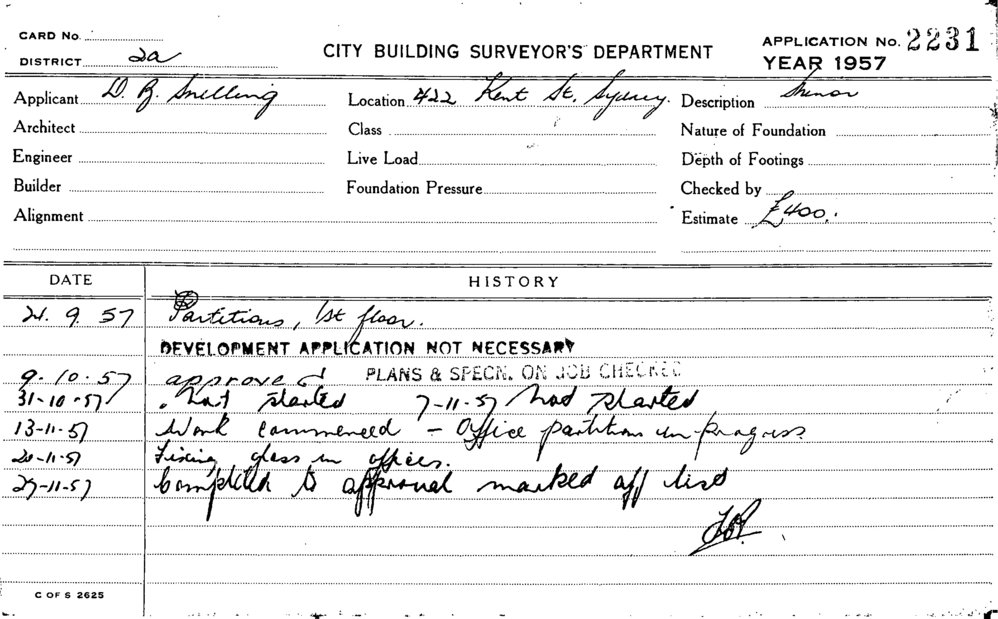 CARD No.
DISTRICT 2a
CITY BUILDING SURVEYOR'S DEPARTMENT
APPLICATION No. 2231
YEAR 1957
Applicant D. B. Snelling
Location 422 Kent St. Sydney.
Description Minor
Architect
Class
Nature of Foundation
Engineer
Live Load
Depth of Footings
Builder
Foundation Pressure
Checked by
Alignment
Estimate £400.
DATE HISTORY
21. 9. 57 Partitions, 1st floor.
DEVELOPMENT APPLICATION NOT NECESSARY
9-10-57 approved PLANS & SPECN. ON JOB CHECKED
31-10-57 not started 7-11-57 not started
13-11-57 Work commenced - Office partition in progress
20-11-57 Fixing glass in offices.
27-11-57 Completed to approval marked off list
C OF S 2625